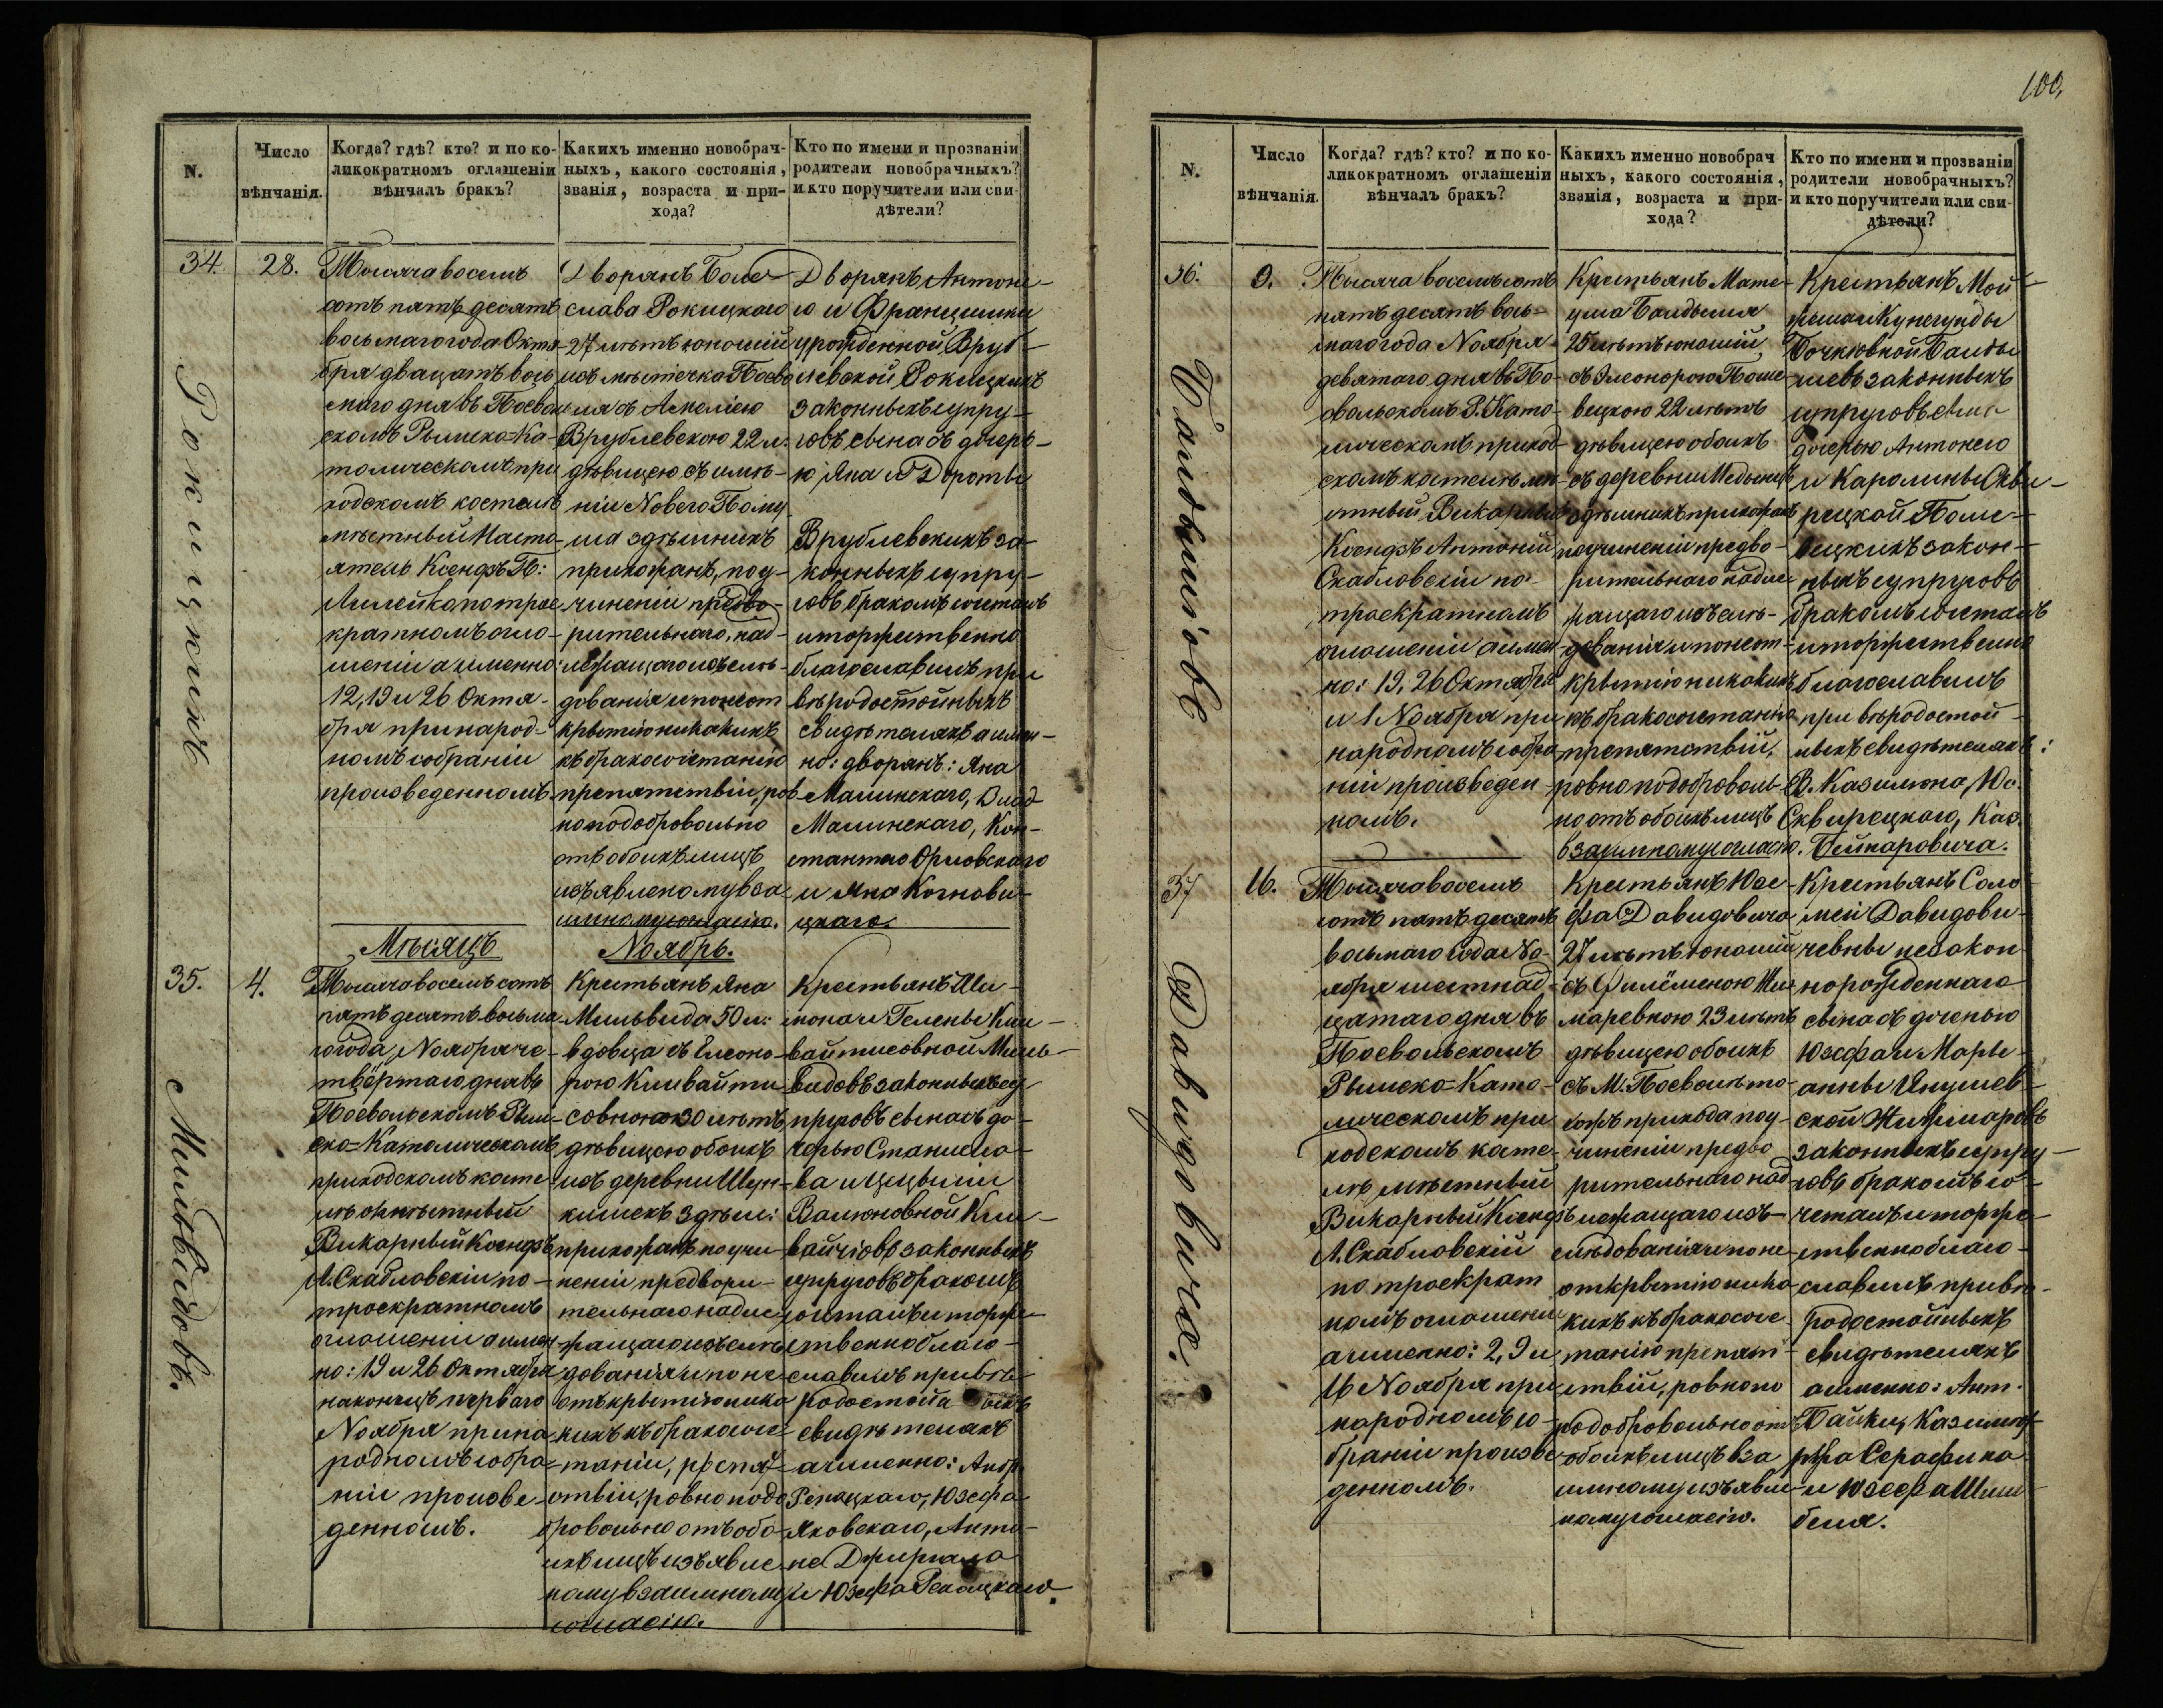 100.
N.
Число
вѣнчанія.
Когда? гдѣ? кто? и по ко-
ликократномъ оглашеніи
вѣнчалъ бракъ?
Какихъ именно новобрач-
ныхъ, какого состоянія,
званія, возраста и при-
хода?
Кто по имени и прозванію
родители новобрачныхъ?
и кто поручители или сви-
дѣтели?
Рокицкихъ
34.
28.
Тысяча восемь
сотъ пятьдесятъ
восьмаго года Октя-
бря двацать вось
маго дня въ Посволь
скомъ Римско-Ка-
толическомъ при
ходскомъ костелѣ
мѣстный Насто-
ятель Ксендзъ
по трое
кратномъ огло-
шеніи а именно:
12, 19 и 26 Октя-
бря при народ-
номъ собраніи
произведенномъ
Дворянъ Боле-
слава Рокицкаго
27 лѣтъ юношій
изъ мѣстечка Посво
ля съ Амеліею
Врублевскою 22 л.
дѣвицею съ имѣ-
нія Нового
здѣшнихъ
прихожанъ, по у-
чиненіи предва-
рительнаго, над-
лежащаго изслѣ-
дованія и по неот
крытію никакихъ
къ бракосочетанію
препятствіи, ров
но по добровольно
отъ обоихъ лицъ
изъявленому вза
имному согласію.
Дворянъ Антоні-
ю и Францишки
урожденной Вруб-
левской Рокицкихъ
законныхъ супру-
говъ сына съ дочерь-
ю Яна и Дороты
Врублевскихъ за-
конныхъ супру-
говъ бракомъ сочеталъ
и торжественно
благославилъ при
вѣродостойныхъ
свидѣтеляхъ а имен-
но: дворянъ: Яна
Малинскаго, Влад
Малинскаго, Кон-
стантего Орловскаго
и Яна
цкаго.
Мѣсяцъ Ноябрь.
Мильвидовъ.
35.
4.
Тысяча восемь сотъ
пятьдесятъ восьма
го года, Ноября че-
твёртаго дня въ
Посвольскомъ Рим-
ско-Католическомъ
приходскомъ косте
лѣ мѣстный
Викарный Ксендзъ
А. Скабловскіи по-
троекратномъ
оглошеніи а имен
но: 19 и 26 Октября
наконецъ перваго
Ноября при на-
родномъ собра-
ніи произве-
денномъ.
Крестьянъ Яна
Мильвида 50 л:
вдовца съ Елеоно-
рою Кливайти
совною 30 лѣтъ
дѣвицею обоихъ
изъ деревни
здѣш:
прихожанъ по учи-
неніи предвори-
тельнаго надле-
жащаго изслѣ
дованія и по не
открытію ника
кихъ къ бракосоче
танію, препят
ствіи, ровно по до
бровольно отъ обо-
ихъ лицъ изъявле
ному взаимному
согласію.
Крестьянъ Ши-
мона и Гелены Кли-
вайтисовной Миль-
видовъ законныхъ су-
пруговъ сына съ до-
черью Станисла-
ва и Цецыліи
Валюновной Кли-
законныхъ
супруговъ бракомъ
сочеталъ и торже-
ственно благо-
славилъ при вѣ-
родостойныхъ
свидѣтеляхъ
а именно: Андр.
Репацкаго, Юзефа
Яковскаго, Анто-
на
и Юзефа Репацкаго.
N.
Число
вѣнчанія.
Когда? гдѣ? кто? и по ко-
ликократномъ оглашеніи
вѣнчалъ бракъ?
Какихъ именно новобрач
ныхъ, какого состоянія,
званія, возраста и при-
хода?
Кто по имени и прозванію
родители новобрачныхъ?
и кто поручители или сви-
дѣтели?
36.
9.
Тысяча восемьсотъ
пятьдесятъ вось-
маго года Ноября
девятаго дня въ По-
свольскомъ Р. Като-
лическомъ приход-
скомъ костелѣ мѣ-
стный Викарный
Ксендзъ Антоній
Скабловскіи по-
троекратномъ
оглошеніи а имен
но: 19, 26 Октября
и 1 Ноября при
народномъ собра
ніи произведен
номъ.
Крестьянъ Мате-
уша
25 лѣтъ юношій,
съ Элеонорою
вецкою 22 лѣтъ
дѣвицею обоихъ
съ деревни
здѣшнихъ прихожанъ
по учиненіи предво-
рительнаго надле
жащаго изслѣ-
дованія и по неот-
крытію никакихъ
къ бракосочетанію
препятствій,
ровно по доброволь-
но отъ обоихъ лицъ
взаимному согласію.
Крестьянъ Мой-
жеша и Кунегунды
законныхъ
супруговъ сына
дочерью Антонего
и Каролины Скви-
рецкой
закон-
ныхъ супруговъ
бракомъ сочеталъ
и торжественно
благославилъ
при вѣродостой-
ныхъ свидѣтеляхъ:
В. Казимона, Юз.
Сквирецкого, Каз.
Бейнаровича.
Давидовича.
37
16.
Тысяча восемь
сотъ пятьдесятъ
восьмаго года Но-
ября шестнад-
цатаго дня въ
Посвольскомъ
Римско-Като-
лическомъ при
ходскомъ косте-
лѣ мѣстный
Викарный Ксендзъ
А. Скабловскій
по троекрат
номъ оглошеніи
а именно: 2, 9 и
16 Ноября при
народномъ со-
браніи произве
денномъ.
Крестьянъ Юзе-
фа Давидовича
27 лѣтъ юношій
съ
маревною 23 лѣтъ
дѣвицею обоихъ
съ М. Посволь то-
гожъ прихода по у-
чиненіи предво
рительнаго над
лежащаго изъ-
слѣдованія и по не
открытію ника
кихъ къ бракосоче
танію препят-
ствій, ровно по
добровольно отъ
обоихъ лицъ вза
имному изъявле-
ному согласію.
Крестьянъ Соло
меи Давидови-
чевны незакон
норожденнаго
сына съ дочерью
Юзефа и Марь-
анны
скои Жижмаровъ
законныхъ супру-
говъ бракомъ со-
четалъ и торже-
ственно благо-
славилъ при вѣ-
родостойныхъ
свидѣтеляхъ
а именно: Ант.
Казими-
ра Серафина
и Юзефа Шим
беля.